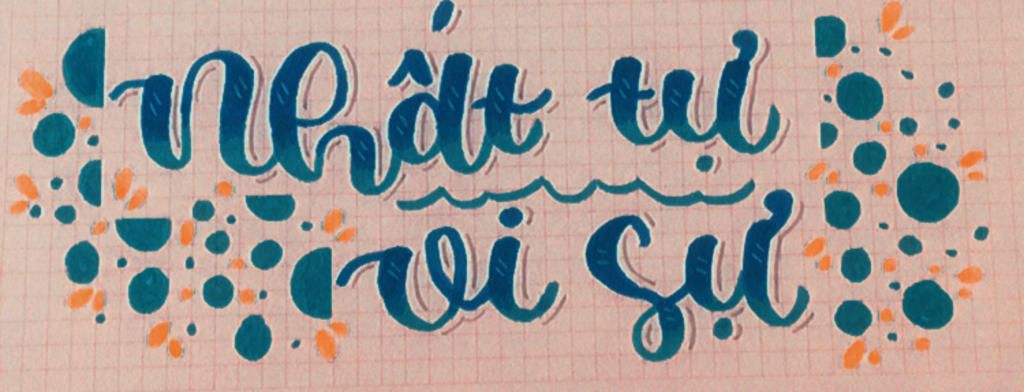 Nhất tự
vi sự